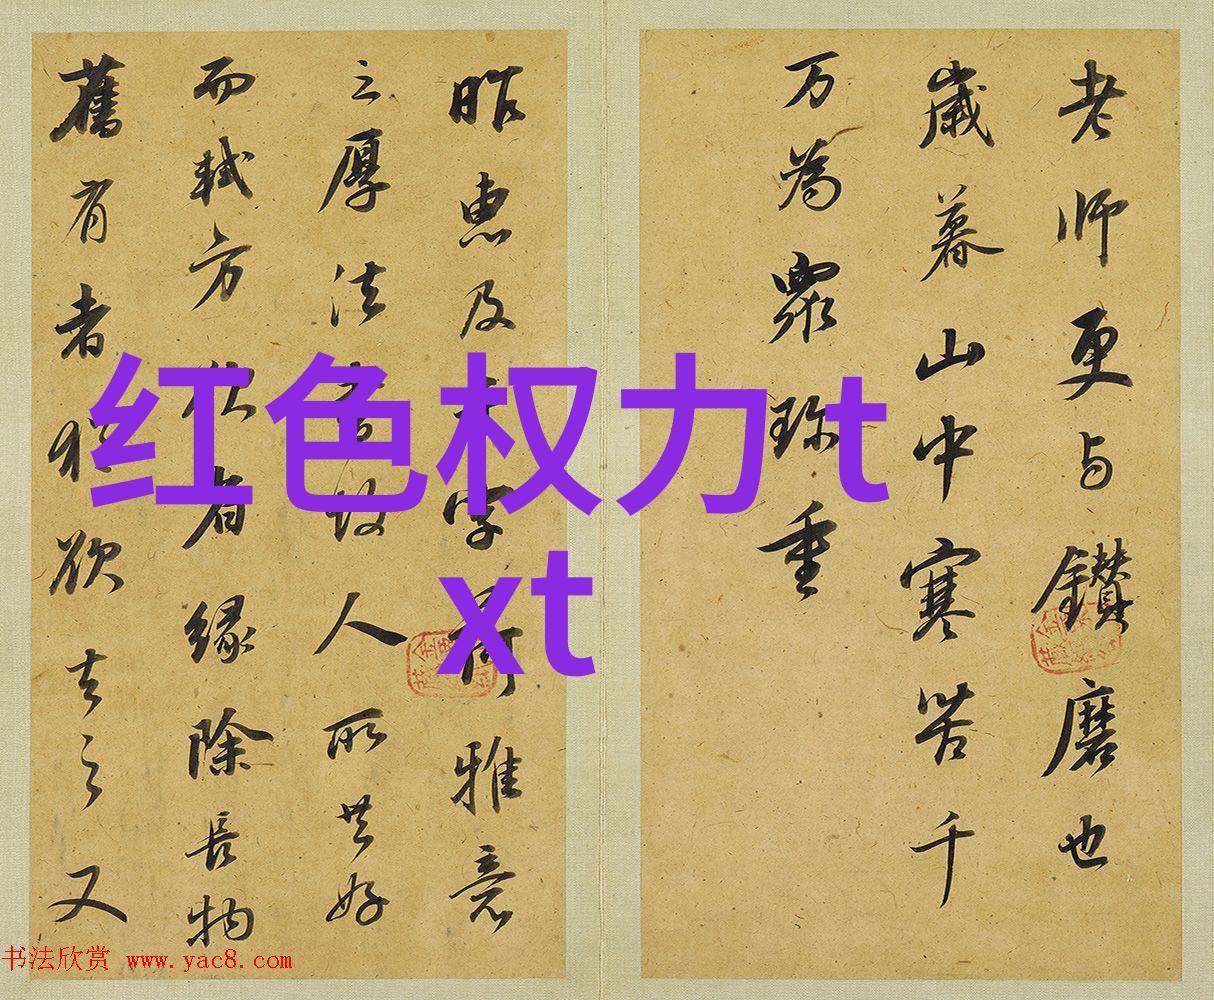 老师更与鑽磨也
歲暮山中寒苦千
万為眾珎重
昨惠及字荷雅意
之厚法人所共好
而軾方省緣除長物
舊有者猶欲去之又
红色权力 t
xt
书法欣赏 www.yac8.com